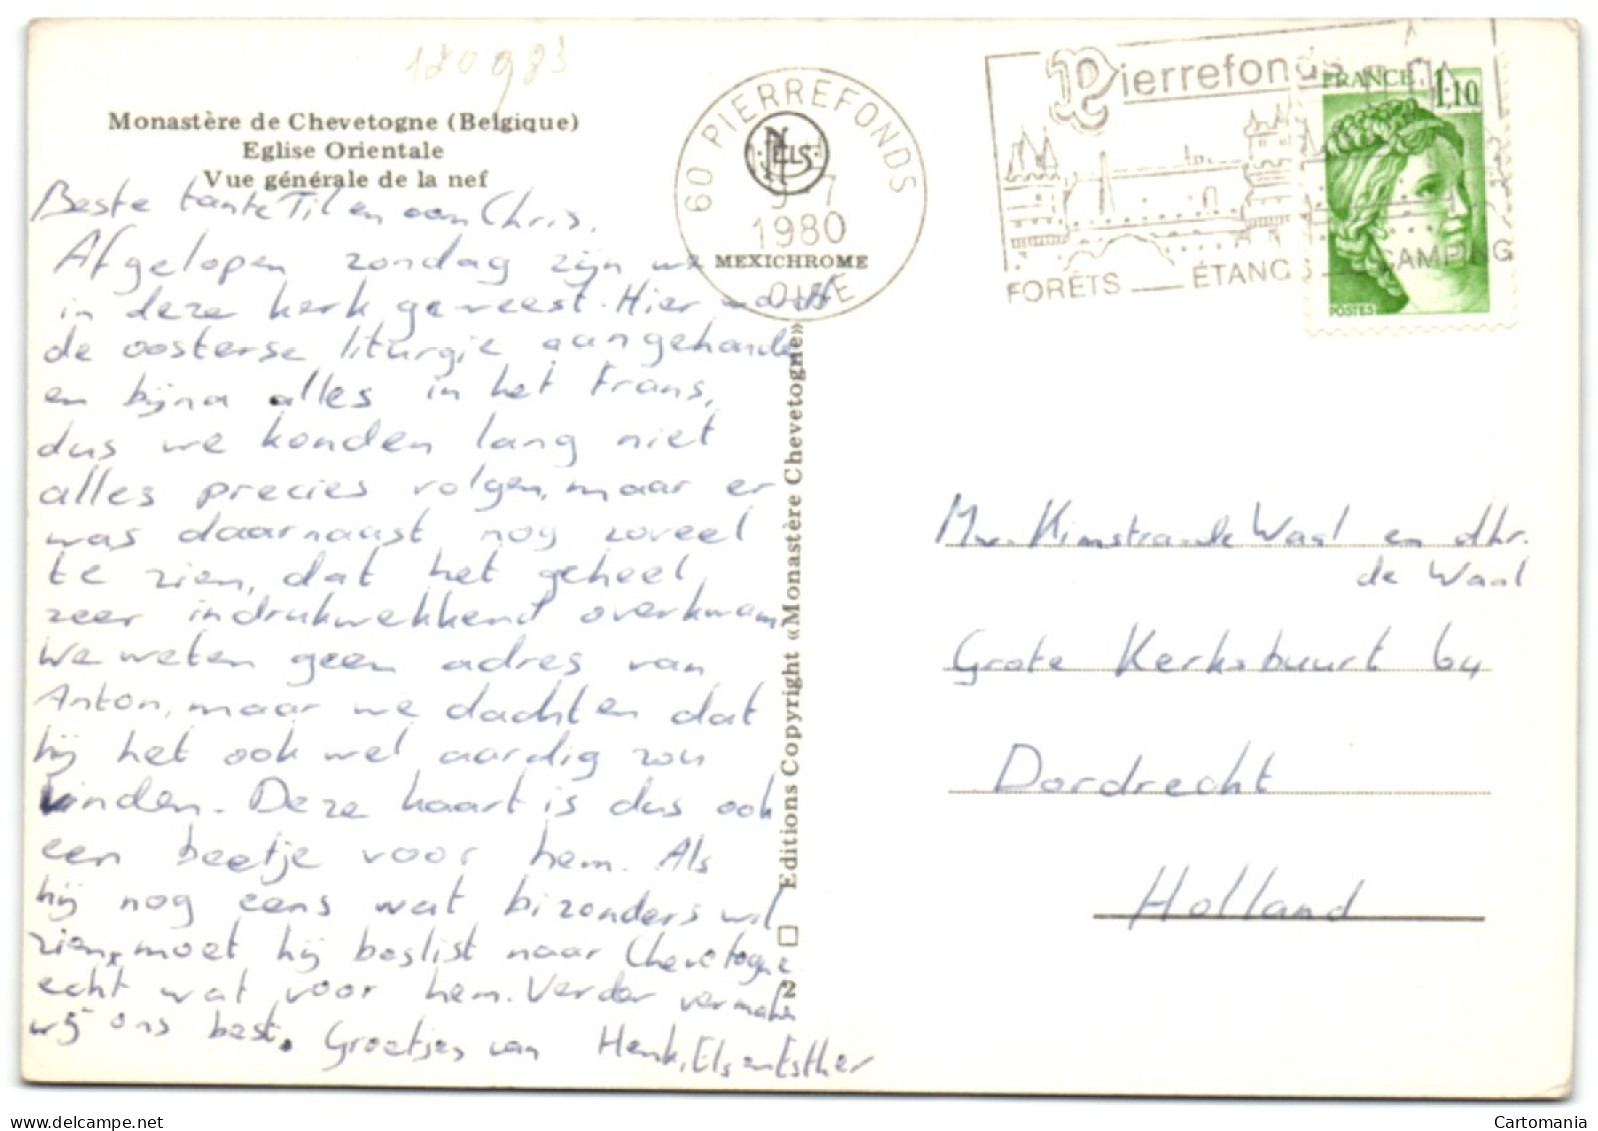 180983
Monastère de Chevetogne (Belgique)
Eglise Orientale
Vue générale de la nef
Beste tante Til en oom Chris,
Afgelopen zondag zijn we
in deze kerk geweest. Hier wordt
de oosterse liturgie aangehouden
en bijna alles in het Frans,
dus we konden lang niet
alles precies volgen, maar er
was daarnaast nog zoveel
te zien, dat het geheel
zeer indrukwekkend overkwam.
We weten geen adres van
Anton, maar we dachten dat
hij het ook wel aardig zou
vinden. Deze kaart is dus ook
een beetje voor hem. Als
hij nog eens wat bizonders wil
zien, moet hij beslist naar Chevetogne
echt wat voor hem. Verder vermaken
wij ons best. Groetjes van Henk, Els en Esther
60 PIERREFONDS
OISE
-7
1980
NELS
MEXICHROME
Editions Copyright «Monastère Chevetogne»
2
Pierrefonds
FORÊTS — ÉTANGS — CAMPING
FRANCE 1.10
POSTES
Mw. Kimstra-de Waal en dhr.
de Waal
Grote Kerksbuurt 64
Dordrecht
Holland
Cartomania